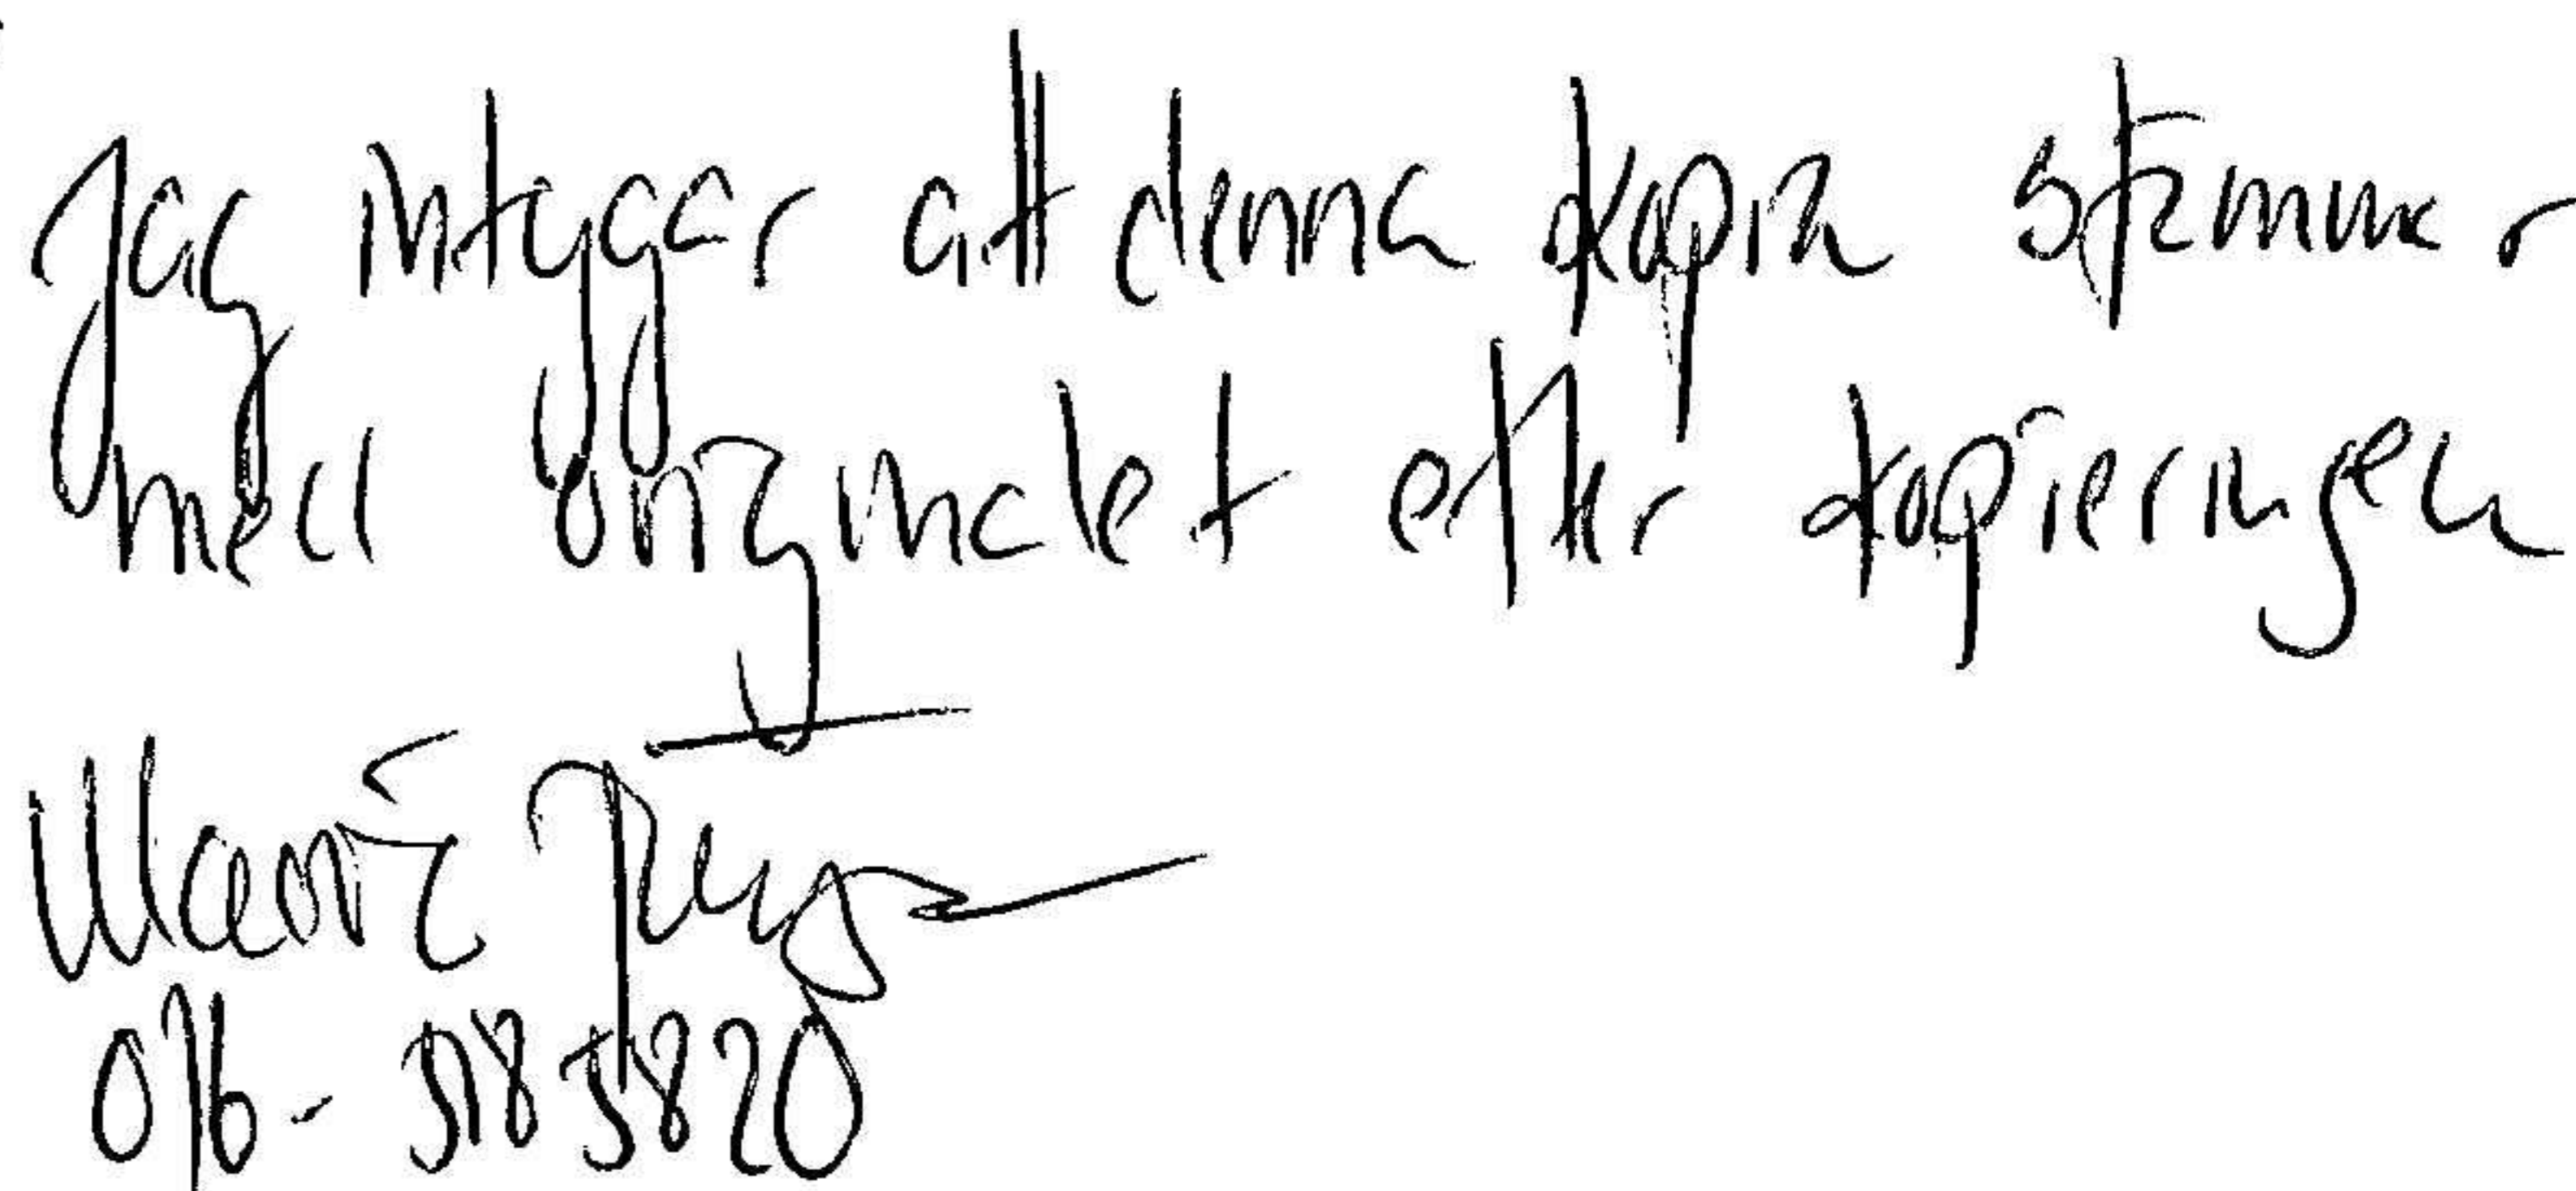 Jag intygar att denna kopia stämmer
med originalet efter kopieringen
076-5185820